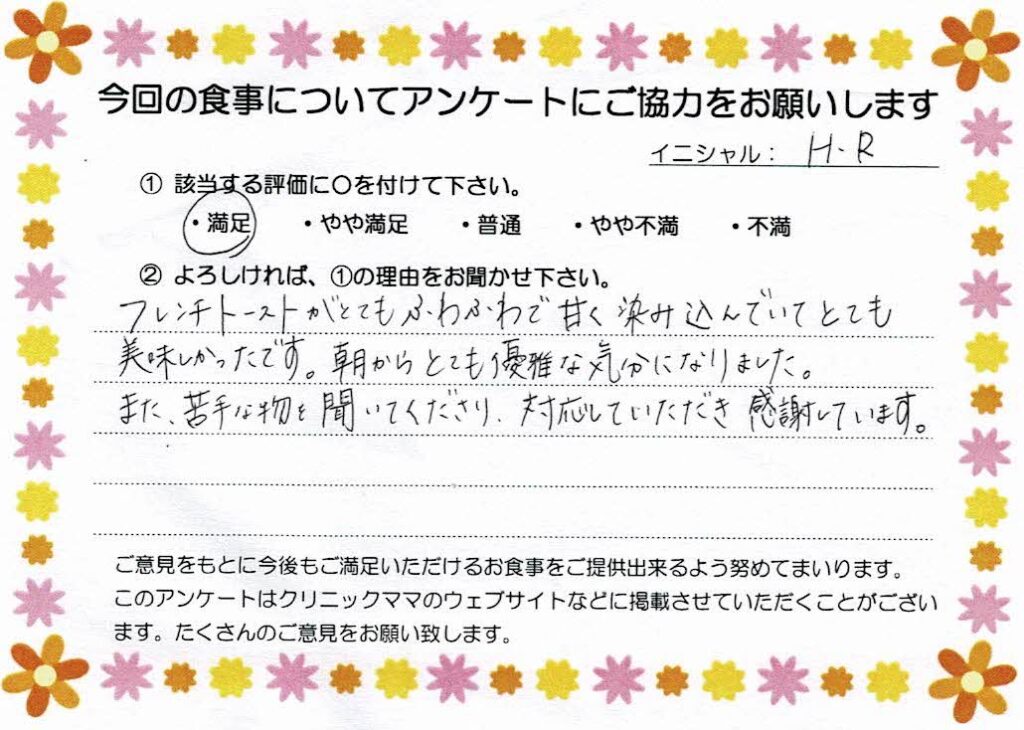 今回の食事についてアンケートにご協力をお願いします
イニシャル： H.R
① 該当する評価に〇を付けて下さい。
・満足 ・やや満足 ・普通 ・やや不満 ・不満
② よろしければ、①の理由をお聞かせ下さい。
フレンチトーストがとてもふわふわで甘く染み込んでいてとても
美味しかったです。朝からとても優雅な気分になりました。
また、苦手な物を聞いてくださり、対応していただき感謝しています。
ご意見をもとに今後もご満足いただけるお食事をご提供出来るよう努めてまいります。
このアンケートはクリニックママのウェブサイトなどに掲載させていただくことがござい
ます。たくさんのご意見をお願い致します。